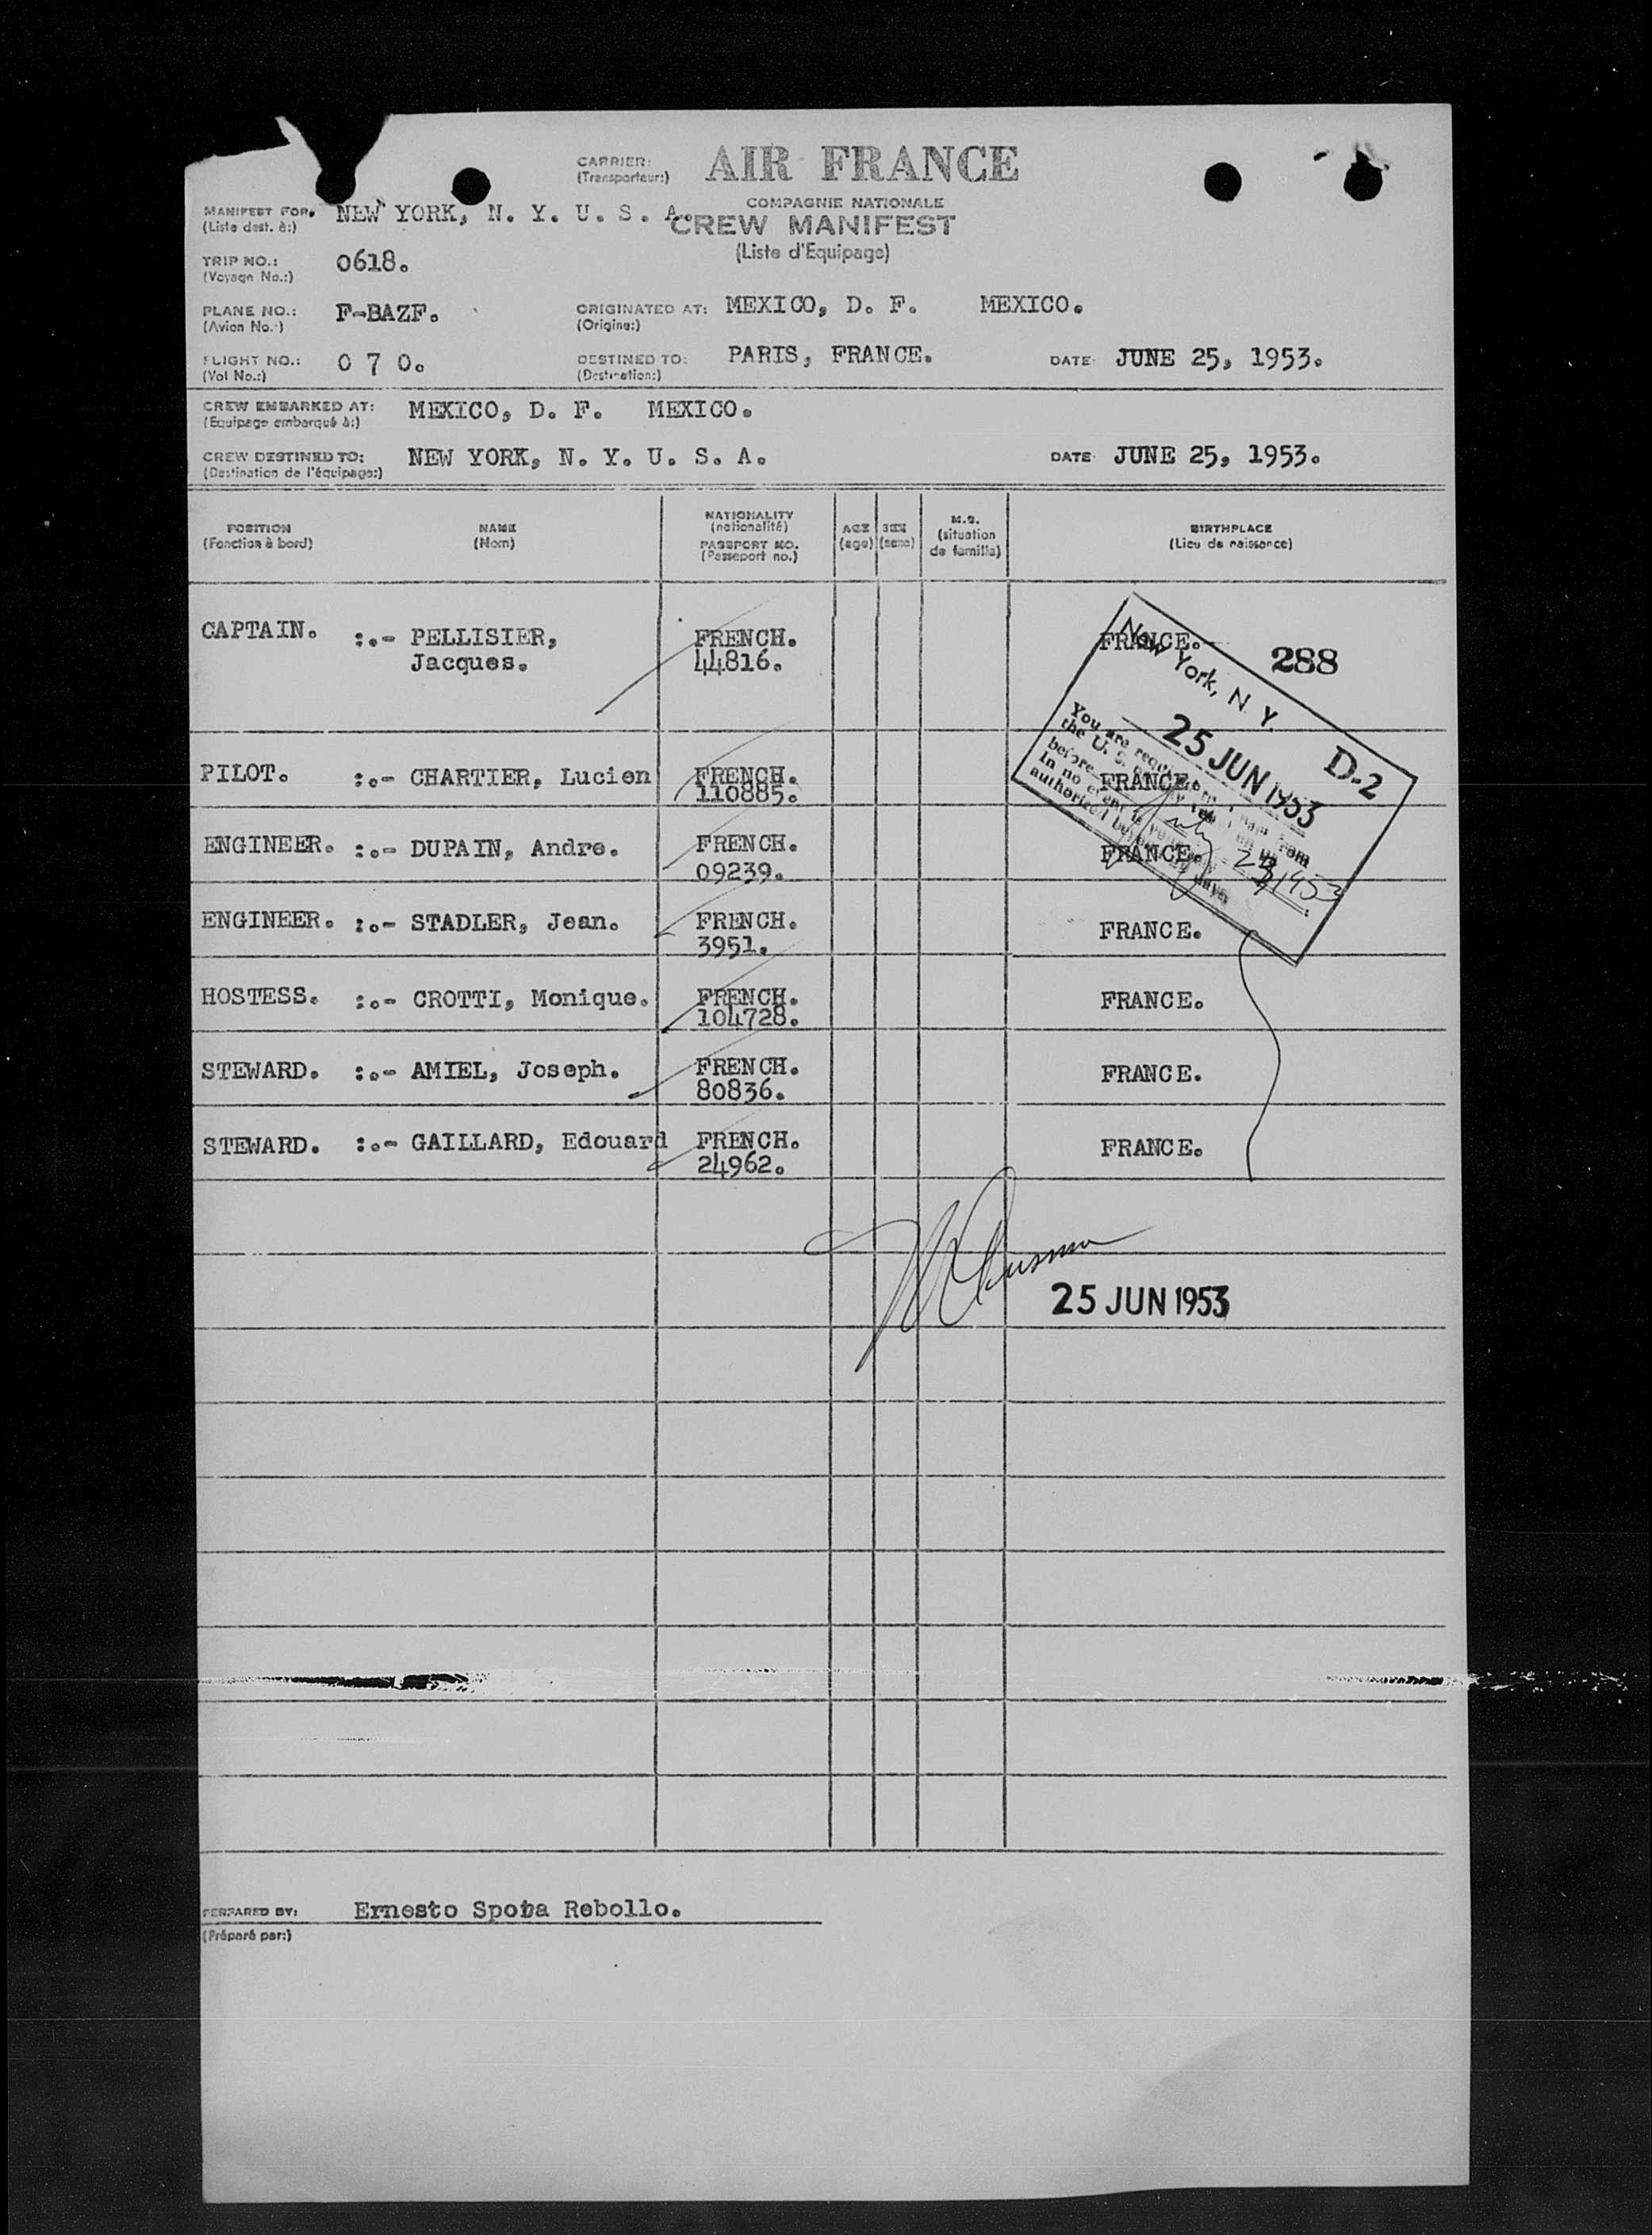 CARRIER: AIR FRANCE
(Transporteur:)
COMPAGNIE NATIONALE
MANIFEST FOR. NEW YORK, N. Y. U. S. A.
(Liste dest. à:)
CREW MANIFEST
(Liste d'Equipage)
TRIP NO.: 0618.
(Voyage No.:)
PLANE NO.: F-BAZF. ORIGINATED AT: MEXICO, D. F. MEXICO.
(Avion No.:) (Origine:)
FLIGHT NO.: 0 7 0. DESTINED TO: PARIS, FRANCE. DATE: JUNE 25, 1953.
(Vol No.:) (Destination:)
CREW EMBARKED AT: MEXICO, D. F. MEXICO.
(Equipage embarqué à:)
CREW DESTINED TO: NEW YORK, N. Y. U. S. A. DATE: JUNE 25, 1953.
(Destination de l'équipage:)
POSITION NAME NATIONALITY AGE SEX M.S. BIRTHPLACE
(Fonction à bord) (Nom) (nationalité) (age) (sexe) (situation de famille) (Lieu de naissance)
PASSPORT NO.
(Passeport no.)
CAPTAIN. :.- PELLISIER, FRENCH. FRANCE. 288
Jacques. 44816.
PILOT. :.- CHARTIER, Lucien FRENCH. FRANCE.
110885.
ENGINEER. :.- DUPAIN, Andre. FRENCH. FRANCE.
09239.
ENGINEER. :.- STADLER, Jean. FRENCH. FRANCE.
3951.
HOSTESS. :.- CROTTI, Monique. FRENCH. FRANCE.
104728.
STEWARD. :.- AMIEL, Joseph. FRENCH. FRANCE.
80836.
STEWARD. :.- GAILLARD, Edouard FRENCH. FRANCE.
24962.
New York, N. Y.
25 JUN 1953 D-2
You are
the U. S.
before July 1953
In no event
authorized days
25 JUN 1953
PERPARED BY: Ernesto Spota Rebollo.
(Préparé par:)